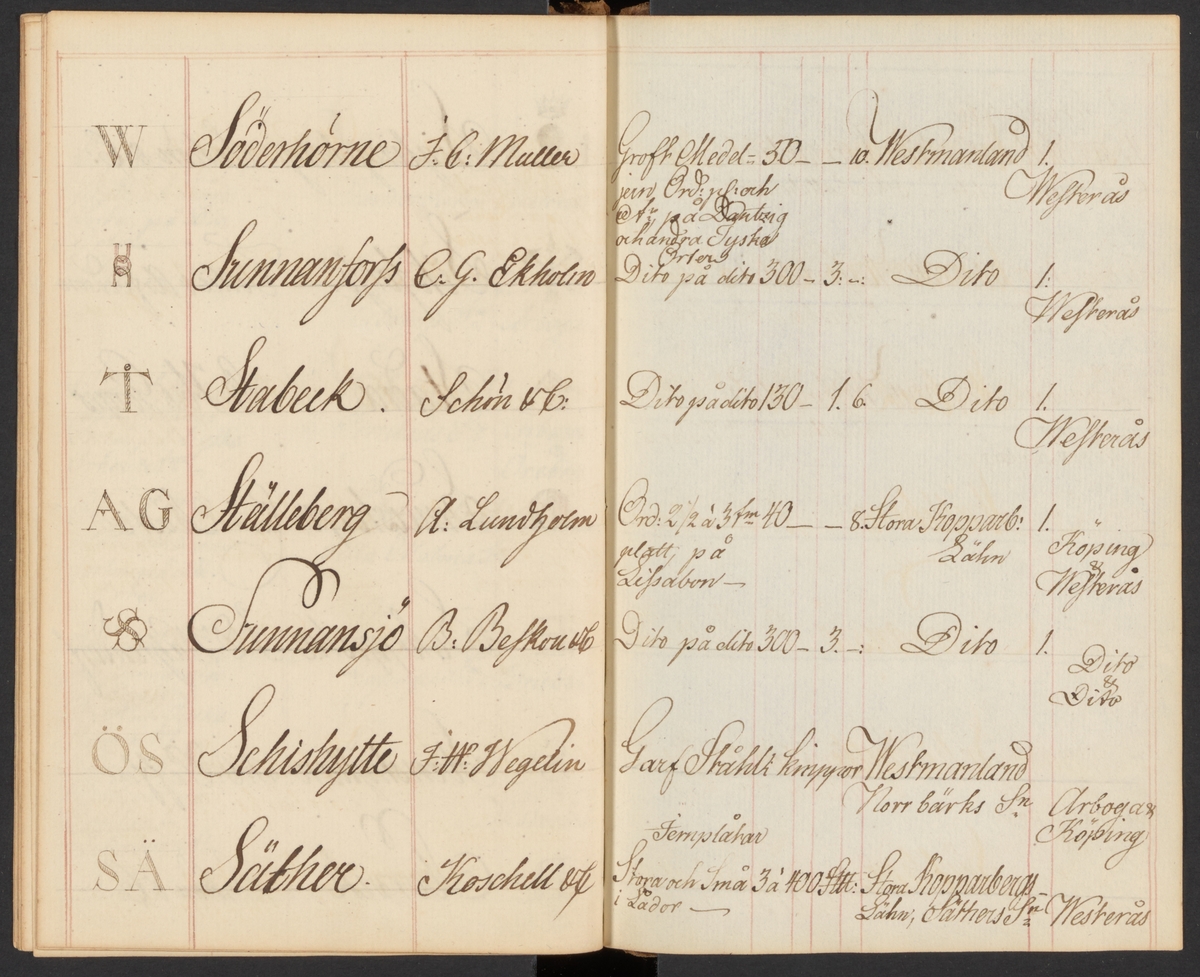 W Söderhörne J. C: Muller Groft Medel= 50 — — 10. Westmanland 1.
jern, Ord: pl: och Westerås
på Dantzig
och andra Tyska
Orter
H Sunnanforss C. G. Ekholm Dito på dito 300 — 3. —: Dito 1:
Westerås
T Stabeck. Schön & C: Dito på dito 130 — 1. 6. Dito 1.
Westerås
AG Ställeberg A: Lundholm Ord: 2 1/2 à 3 tm 40 — — 8. Stora Kopparb: 1.
platt, på Lähn Köping
&
Lissabon — Westerås
SS Sunnansjö B: Beskou & C Dito på dito 300 — 3. —: Dito 1.
Dito
&
Dito
ÖS Schishytte J: W: Wegelin Garf Ståhl i knippor Westmanland
Norrbärks Sn Arboga &
Jernplåtar Köping
SÄ Säther. Koschell & C Stora och Små 3 à 400 Stora Kopparbergs
i Lådor — Lähn, Säthers Sn Westerås